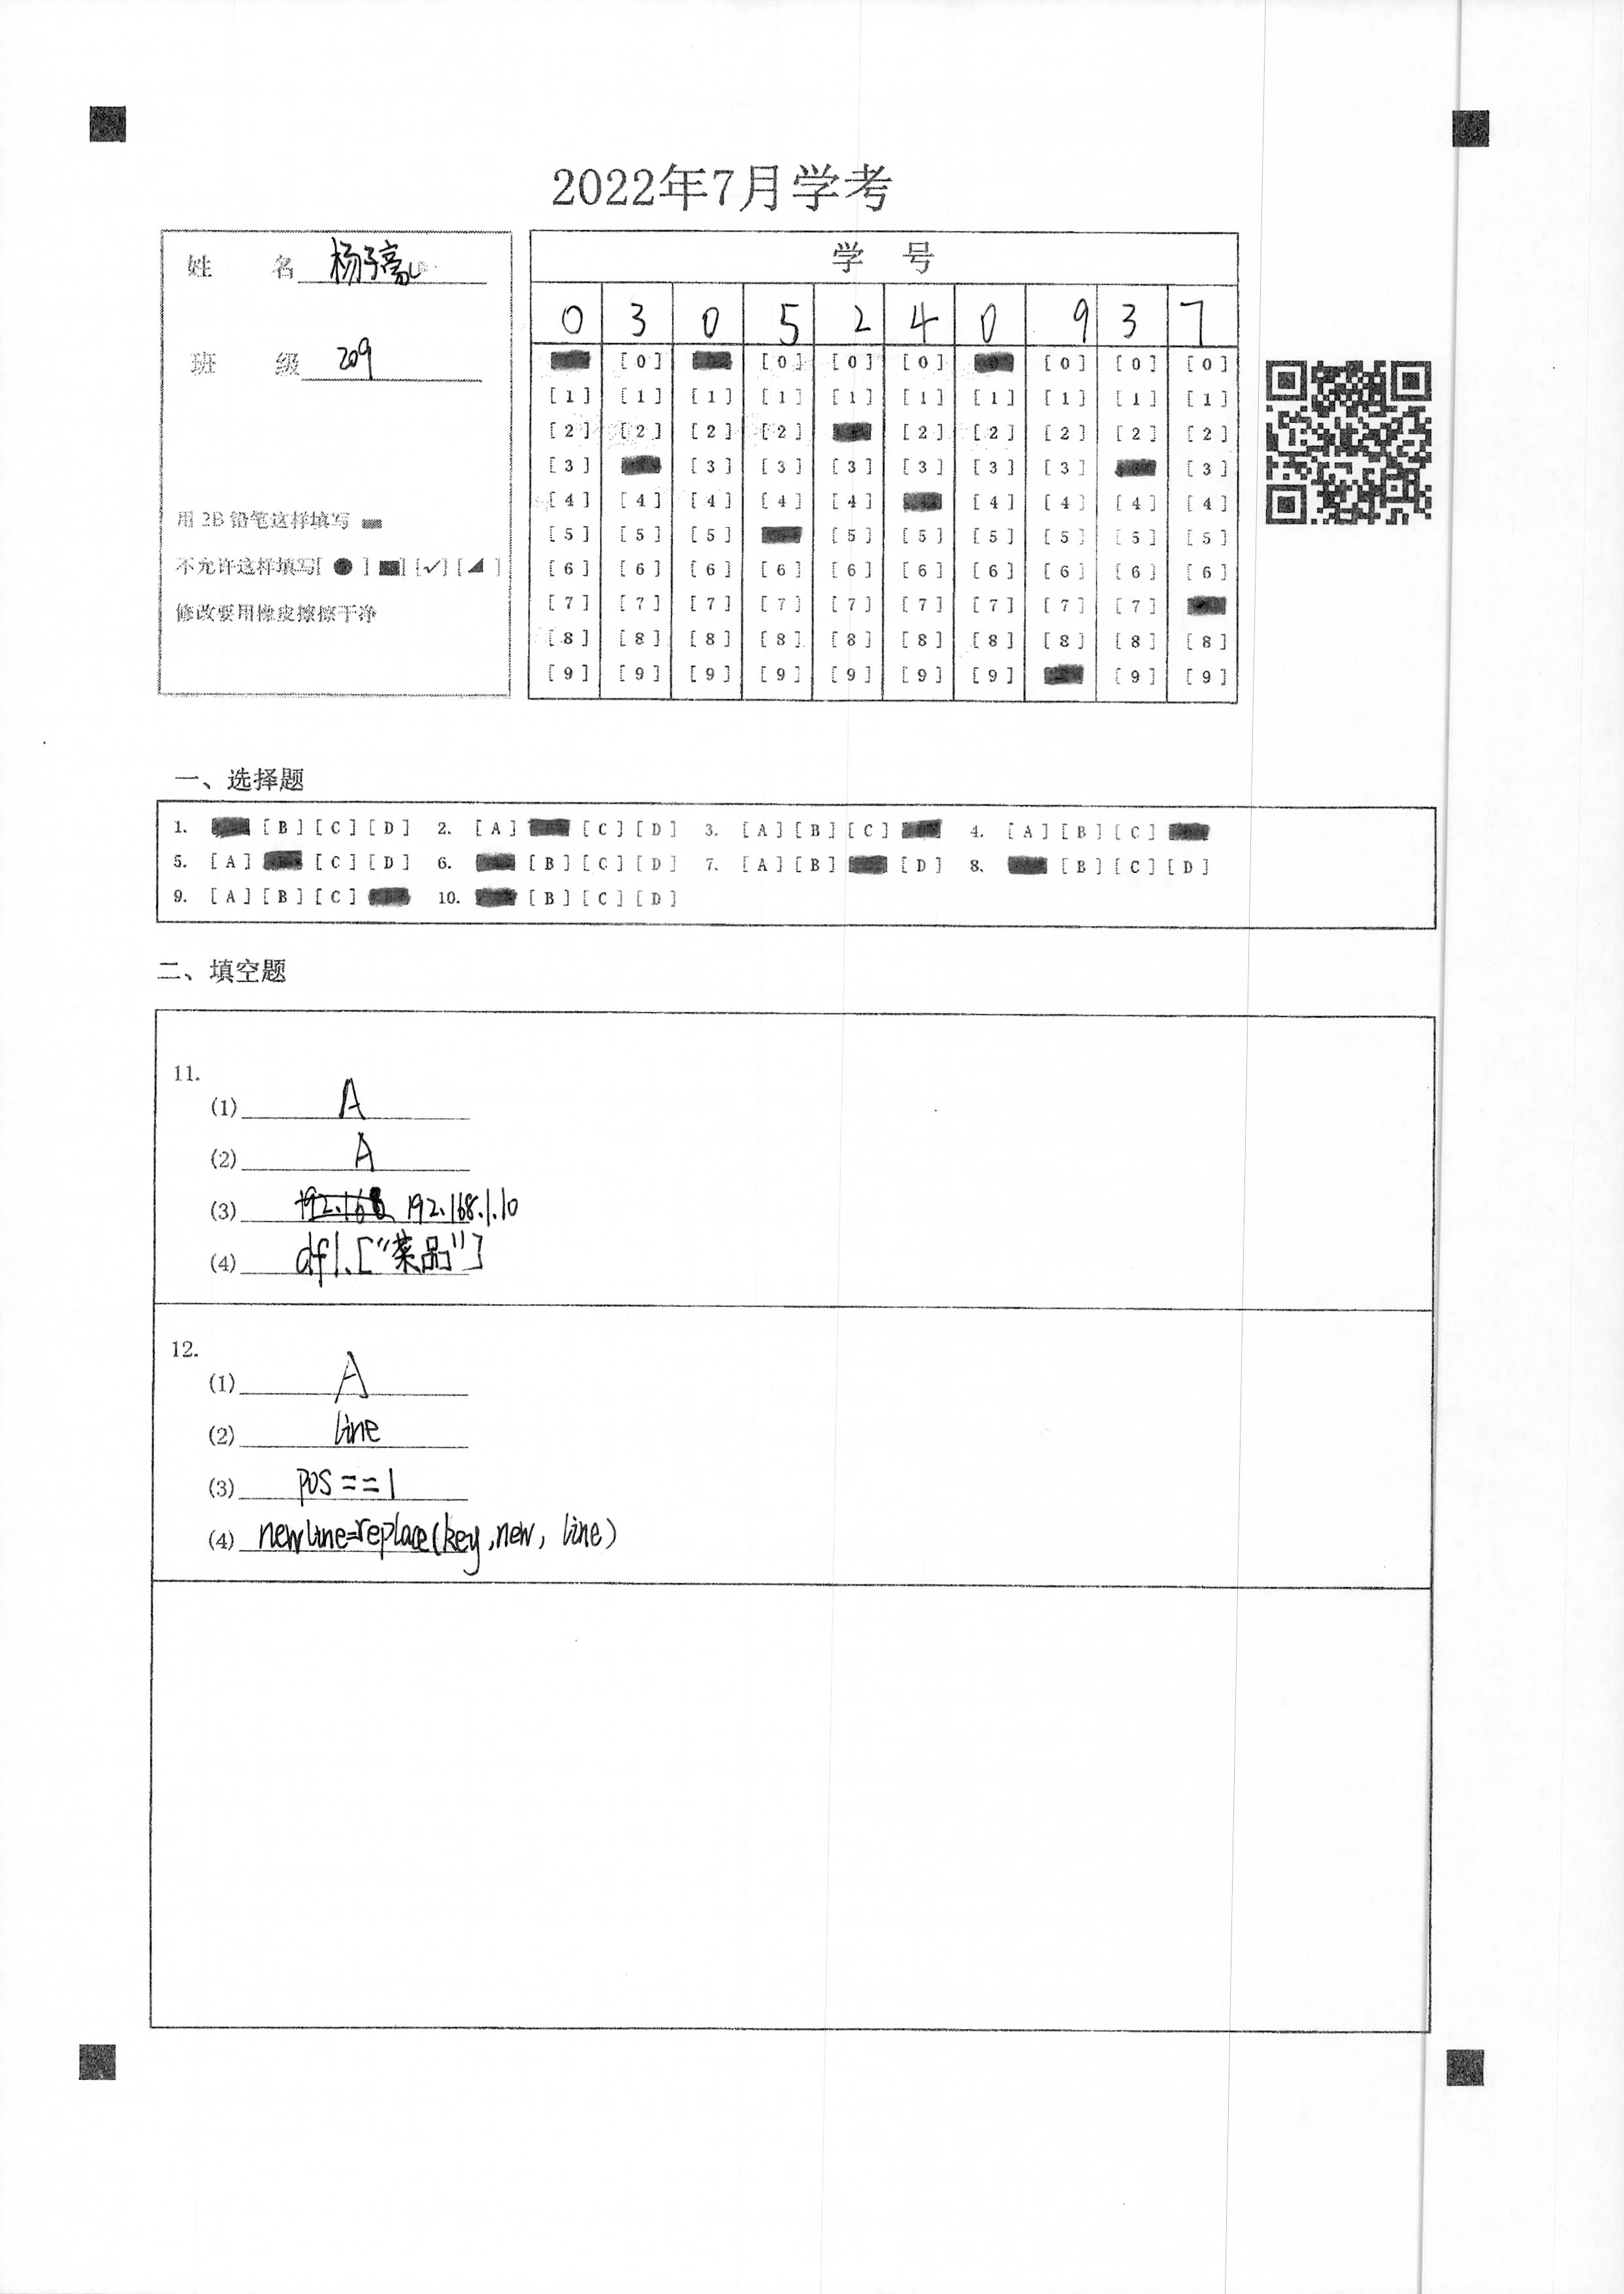 2022年7月学考
姓 名 杨子高
班 级 209
用 2B 铅笔这样填写
不允许这样填写[ ● ] [■] [✓] [◢ ]
修改要用橡皮擦擦干净
学 号
0 3 0 5 2 4 0 9 3 7
[0] [0] [0] [0] [0] [0] [0]
[1] [1] [1] [1] [1] [1] [1] [1] [1] [1]
[2] [2] [2] [2] [2] [2] [2] [2] [2]
[3] [3] [3] [3] [3] [3] [3] [3]
[4] [4] [4] [4] [4] [4] [4] [4] [4]
[5] [5] [5] [5] [5] [5] [5] [5] [5]
[6] [6] [6] [6] [6] [6] [6] [6] [6] [6]
[7] [7] [7] [7] [7] [7] [7] [7] [7]
[8] [8] [8] [8] [8] [8] [8] [8] [8] [8]
[9] [9] [9] [9] [9] [9] [9] [9] [9]
一、选择题
1. [B] [C] [D] 2. [A] [C] [D] 3. [A] [B] [C] 4. [A] [B] [C]
5. [A] [C] [D] 6. [B] [C] [D] 7. [A] [B] [D] 8. [B] [C] [D]
9. [A] [B] [C] 10. [B] [C] [D]
二、填空题
11.
(1) A
(2) A
(3) 192.168 192.168.1.10
(4) df1.["菜品"]
12.
(1) A
(2) line
(3) pos==1
(4) newline=replace(key,new, line)